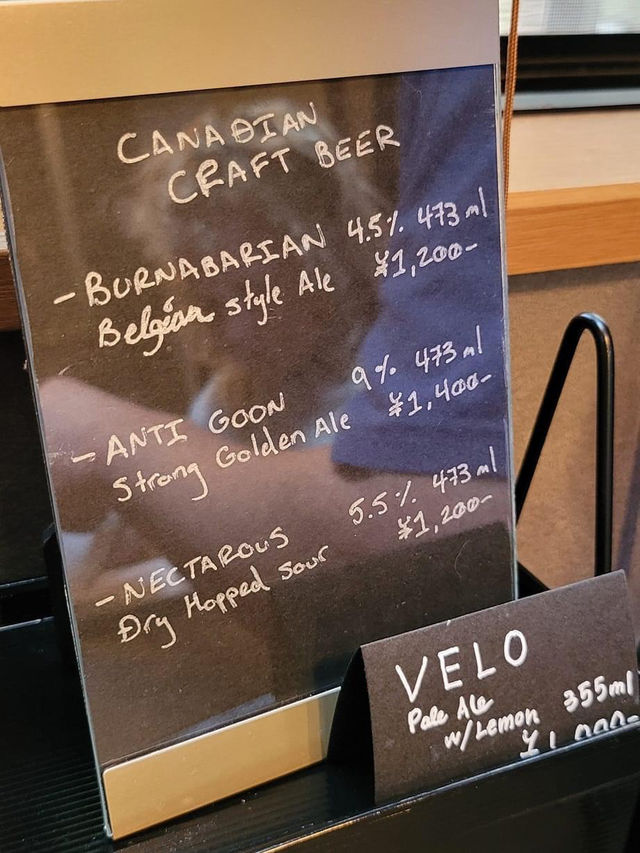 CANADIAN
CRAFT BEER
- BURNABARIAN 4.5% 473ml
Belgian style Ale ¥1,200-
- ANTI GOON 9% 473ml
Strong Golden Ale ¥1,400-
- NECTAROUS 5.5% 473ml
Dry Hopped Sour ¥1,200-
VELO
Pale Ale 355ml
w/Lemon ¥1,000-